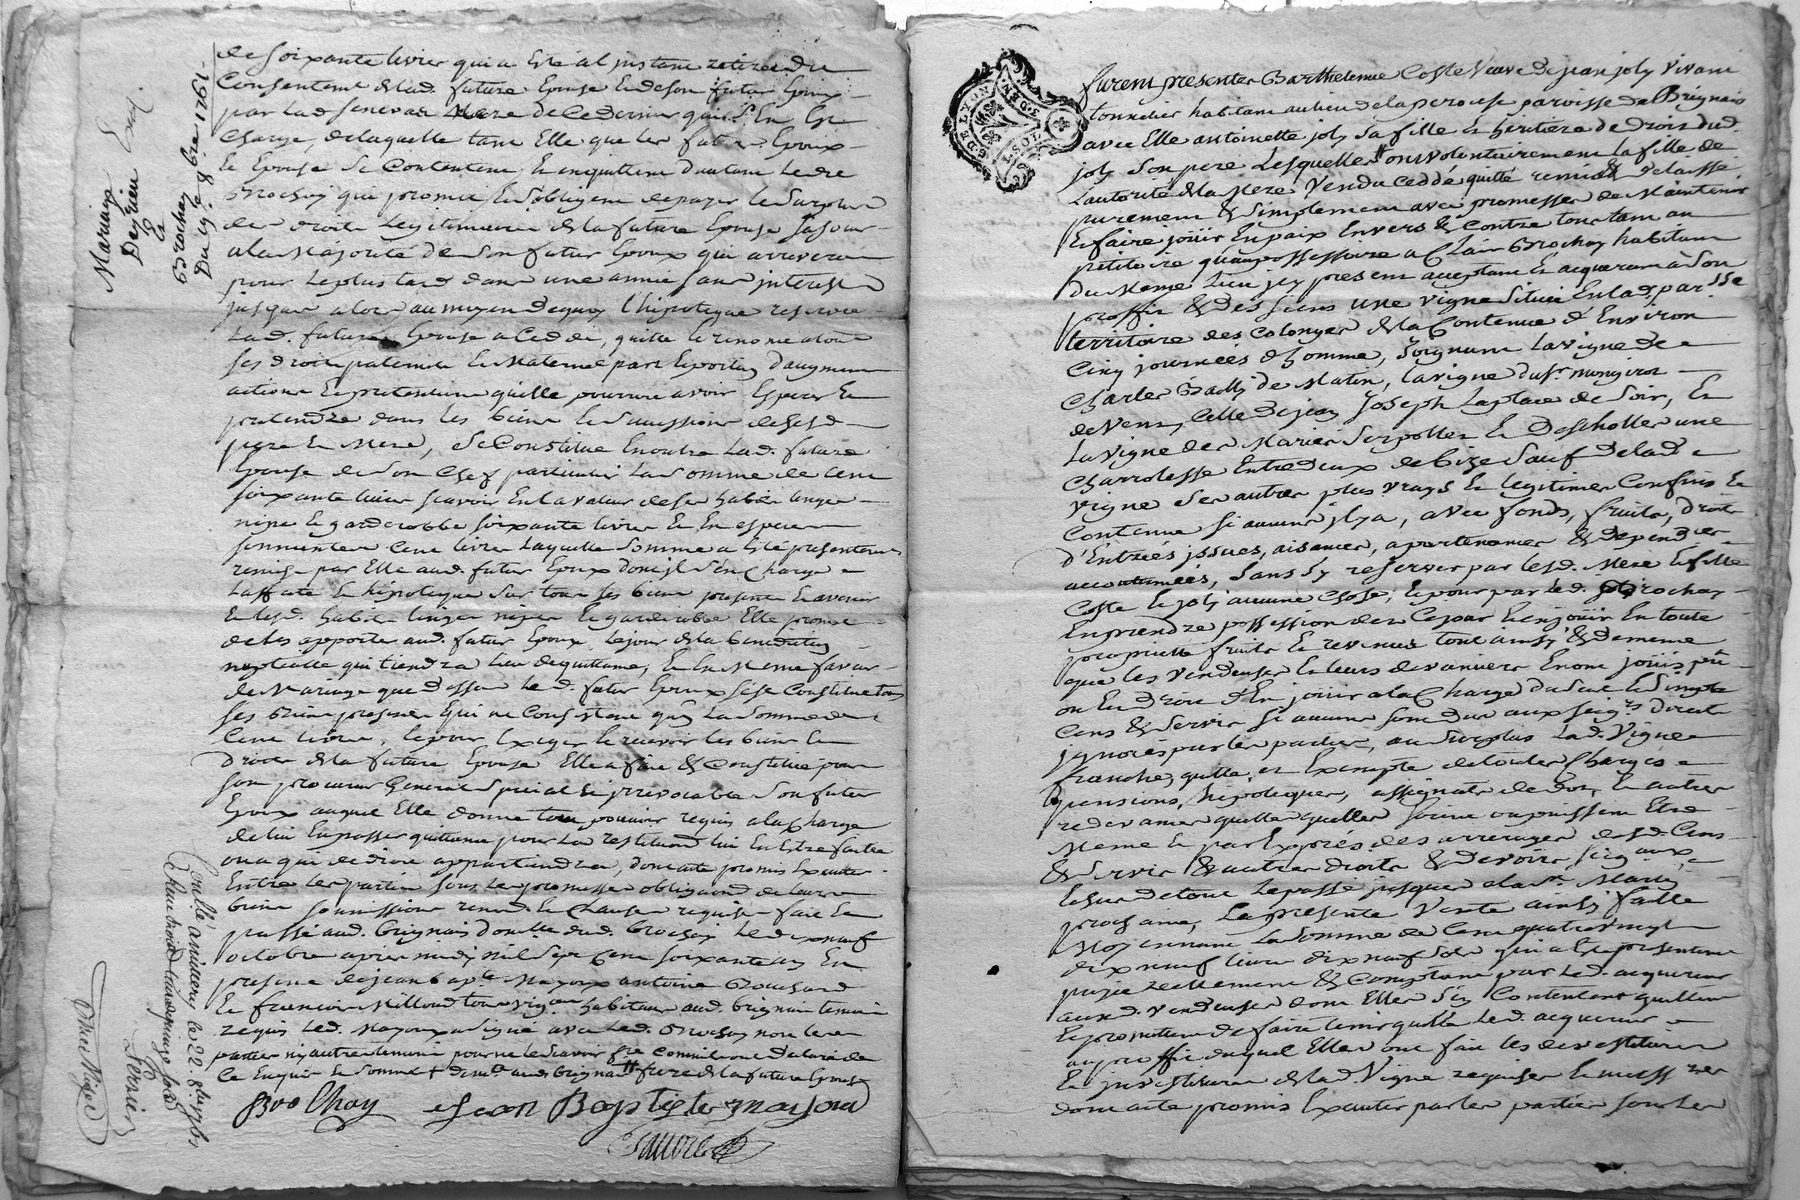 Mariage
Degrieu
&
Brochay
Du 19e 8bre 1761
de soixante livres qui a esté a l'instant retirée du
Consentemt de lad. future Epouse & de son futur Epoux
par lad. mere de ce dernier qui s'en est
Chargé, de laquelle tant Elle que les futurs Epoux
Brochay qui promet & s'oblige de payer le surplus
des droits legitimaires de la future Epouse sa soeur
a la Majorité de son futur Epoux qui arrivera
pour le plus tard dans une année sans interest
jusqu'alors au moyen dequoy l'hipoteque reservée
Lad. future Epouse a Ceddé, quitté & renoncé a tous
ses droits paternels & Maternels part & portion d'augment
actions & pretentions quelle pourroit avoir Esperer &
pretendre dans les biens & successions de sesd.
pere & Mere, se Constitue En outre Lad. future
Epouse de son Chef particulier la somme de cent
soixante livres scavoir En la valeur de ses habits linges
nipes & garderobbe soixante livres & En especes
sonnantes Cent livres Laquelle somme a esté presentement
remise par Elle aud. futur Epoux dont il s'en Charge
& hipoteque sur tous ses biens presents & avenir
& lesd. habits linges nipes & garderobbe Elle promet
de les apporter aud. futur Epoux le jour de la benediction
nuptialle qui tiendra lieu de quittance, & En Meme faveur
de Mariage que dessus Led. futur Epoux s'est Constitué tous
ses biens presents qui ne Consistent qu'en la somme de
Cent livres, & pour Exiger & recevoir les biens &
Droits de la future Epouse Elle a fait & Constitué pour
son procureur General special & irrevocable son futur
Epoux auquel Elle donne tout pouvoir requis a la Charge
de lui En passer quittance pour la restitution lui En Estre faite
ou a qui de droit appartiendra, dont acte promis Executer
Entre les parties sous les promesses obligations de leurs
biens soumissions renonc. & Clauses requises fait &
passé aud. brignais domicile dud. Brochay le dixneuf
octobre apres midy mil sept cent soixante un En
presence de jean bapte Mayoux antoine Bouchard
& francois Milloud tous habitans aud. brignais temoins
requis Led. Mayoux a signé avec Led. Brochay non les
parties ny autre temoin pour ne le scavoir fre
Brochay Jean Baptiste mayoud
Controllé a le 22. 8bre 1761
furent presentes Barthelemie Coste Veuve de jean joly vivant
tonnelier habitant au lieu de la perouse paroisse de Brignais
avec Elle antoinette joly sa fille & heritiere de droit dud.
joly son pere Lesquelles ont volontairement la fille de
L'autorité de la Mere Vendu Ceddé quitté remis & delaissé
purement & simplement avec promesses de Maintenir
& faire jouir En paix Envers & Contre tous tant au
petitoire qu'au possessoire a Brochay habitant
du Meme Lieu jcy present acceptant & acquerant a son
proffit & des siens une vigne située En lad. parsse
territoire des Colonges de la Contenue d'Environ
Cinq journées d'homme, joignant la vigne de
Charles Bailly de Matin, la vigne du sr
de Vent, celle de jean Joseph Laplace de Soir, &
la vigne des Mariés Serpollet & Descholles une
Charrolesse Entredeux de bize sauf de lad.
vigne ses autres plus vrays & legitimes Confins &
Contenue si aucuns jl y a, avec fonds, fruits, droits
d'Entrées jssues, aisances, apartenances & dependces
accoutumées, sans s'y reserver par lesd. Mere & fille
Coste & joly aucune Chose, & pour par led. Brochay
En prendre possession dez Ce jour & En jouir En toute
proprieté fruits & revenus tout ainsy & de meme
que les Vendeuses & leurs devanciers En ont jouis pû
ou Eu droit d'En jouir a la Charge du seul & simple
Cens & servis si aucuns sont dus aux seigrs directs
jgnorés par les parties, au surplus Lad. Vigne
franche, quitte, & Exempte de toutes Charges
pensions, hipoteques, assignats de dot, & autres
redevances quelles quelles soient ou puissent Etre
Meme & par Exprés des arrérages desd. Cens
& servis & autres droits & devoirs seigaux
& le tout du passé jusques a la st Martin
prochaine, La presente Vente ainsy faitte
Moyennant la somme de Cent quatrevingt
dix neuf livres dix neuf sols qui a esté presentement
payée reellement & Comptant par Led. acquereur
auxd. Vendeuses dont Elles s'En Contentent quittent
& promettent de faire tenir quitte Led. acquereur
au proffit duquel Elles ont fait les devestitures
& jnvestitures de lad. Vigne requises & necessres
dont acte promis Executer par les parties sous les